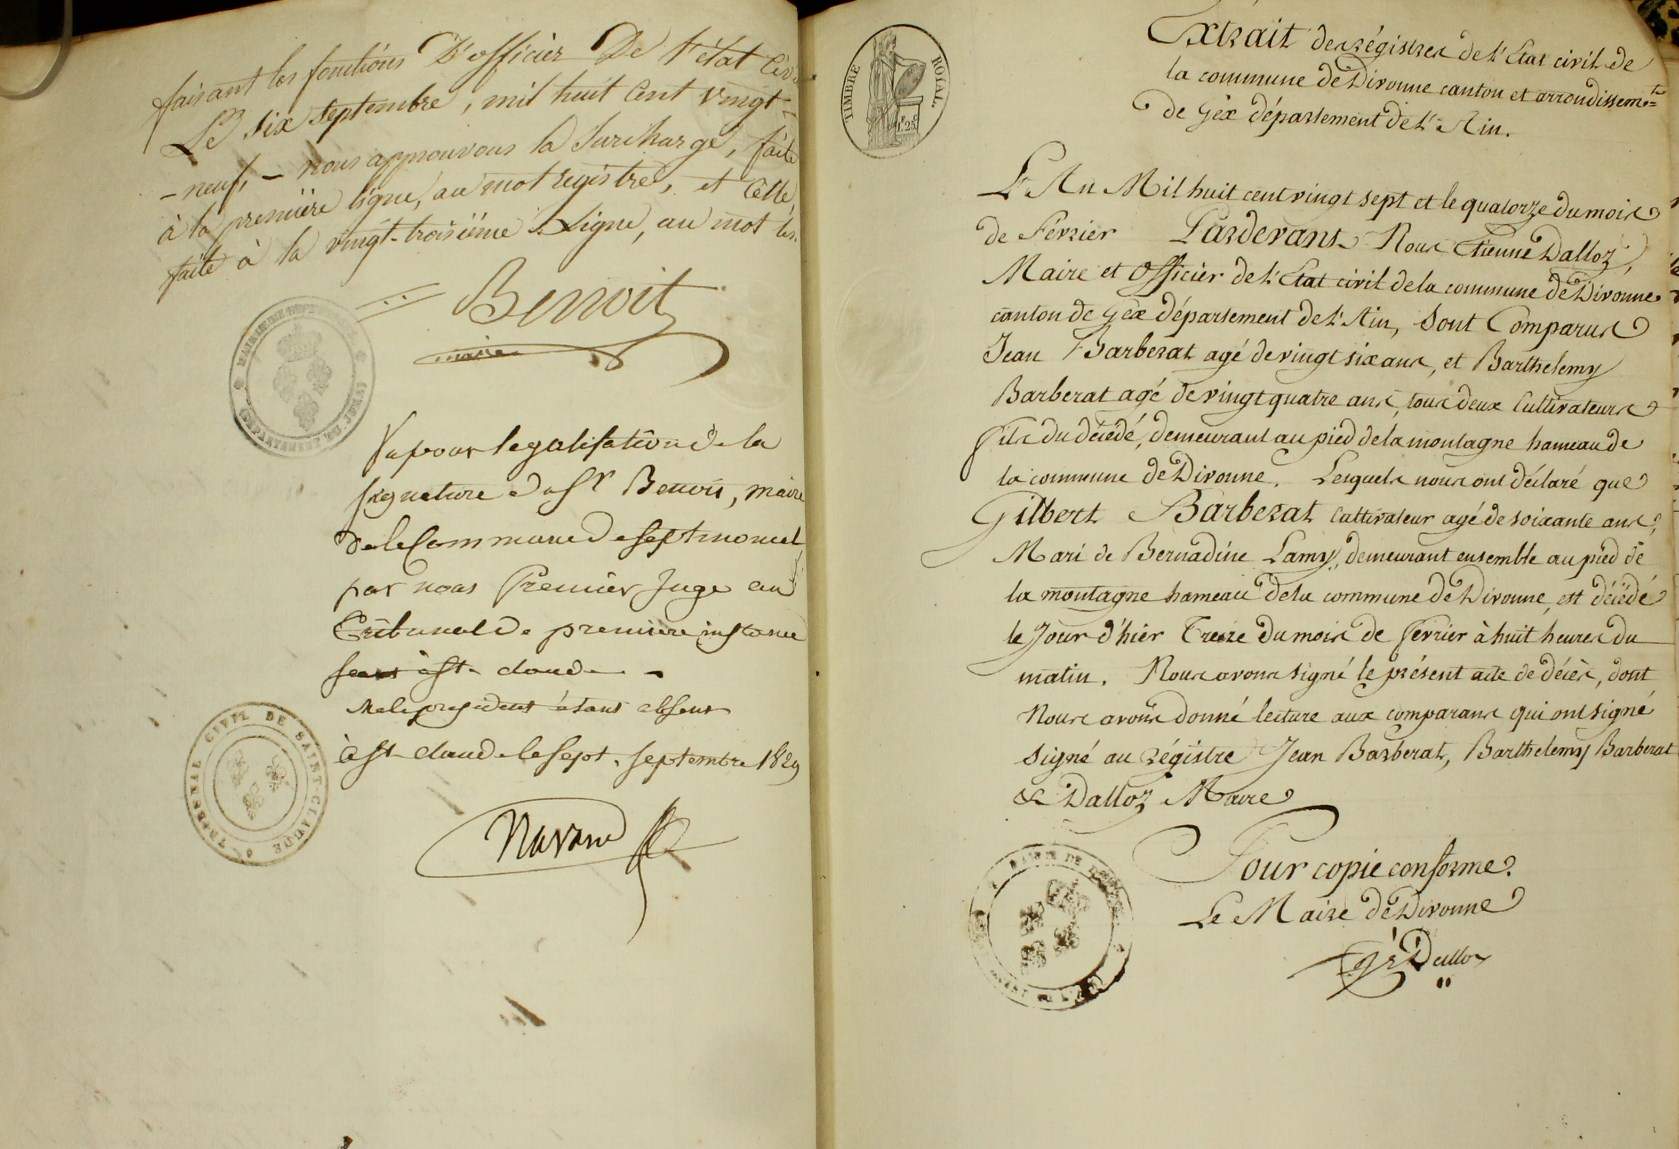 faisant les fonctions D'officier De l'état Civ
Le six septembre, mil huit Cent vingt-
-neuf, - nous approuvons la Surcharge, faite
à la première ligne, au mot registre, et Celle,
faite à la vingt-troisième Ligne, au mot les.
Benoit
maire
Vu pour legalisation de la
signature du Sr Benoit, maire
de la Commune de septmoncel,
par nous Premier Juge au
Tribunal de première instance
séant à St. claude.
Mr le president étant absent
à St. claude le sept septembre 1829
TRIBUNAL CIVIL DE SAINT-CLAUDE
TIMBRE ROYAL
1F. 25C.
Extrait des régistres de l'Etat civil de
la commune de Divonne canton et arrondissem.t
de Gex département de l'Ain.
L'An Mil huit cent vingt sept et le quatorze du mois
de Février Pardevant Nous Etienne Dalloz,
Maire et Officier de l'Etat civil de la commune de Divonne
canton de Gex département de l'Ain, Sont Comparus
Jean Barberat agé de vingt six ans, et Barthelemy
Barberat agé de vingt quatre ans, tous deux Cultivateurs
fils du décédé, demeurant au pied de la montagne hameau de
la commune de Divonne. Lesquels nous ont déclaré que
Gilbert Barberat Cultivateur agé de soixante ans,
Mari de Bernadine Lamy, demeurant ensemble au pied de
la montagne hameau de la commune de Divonne, est décédé
le Jour d'hier Treize du mois de fevrier à huit heures du
matin. Nous avons signé le présent acte de décès, dont
Nous avons donné lecture aux comparans qui ont signé
signé au régistre Jean Barberat, Barthelemy Barberat
& Dalloz Maire
Pour copie conforme
Le Maire de Divonne
Dalloz